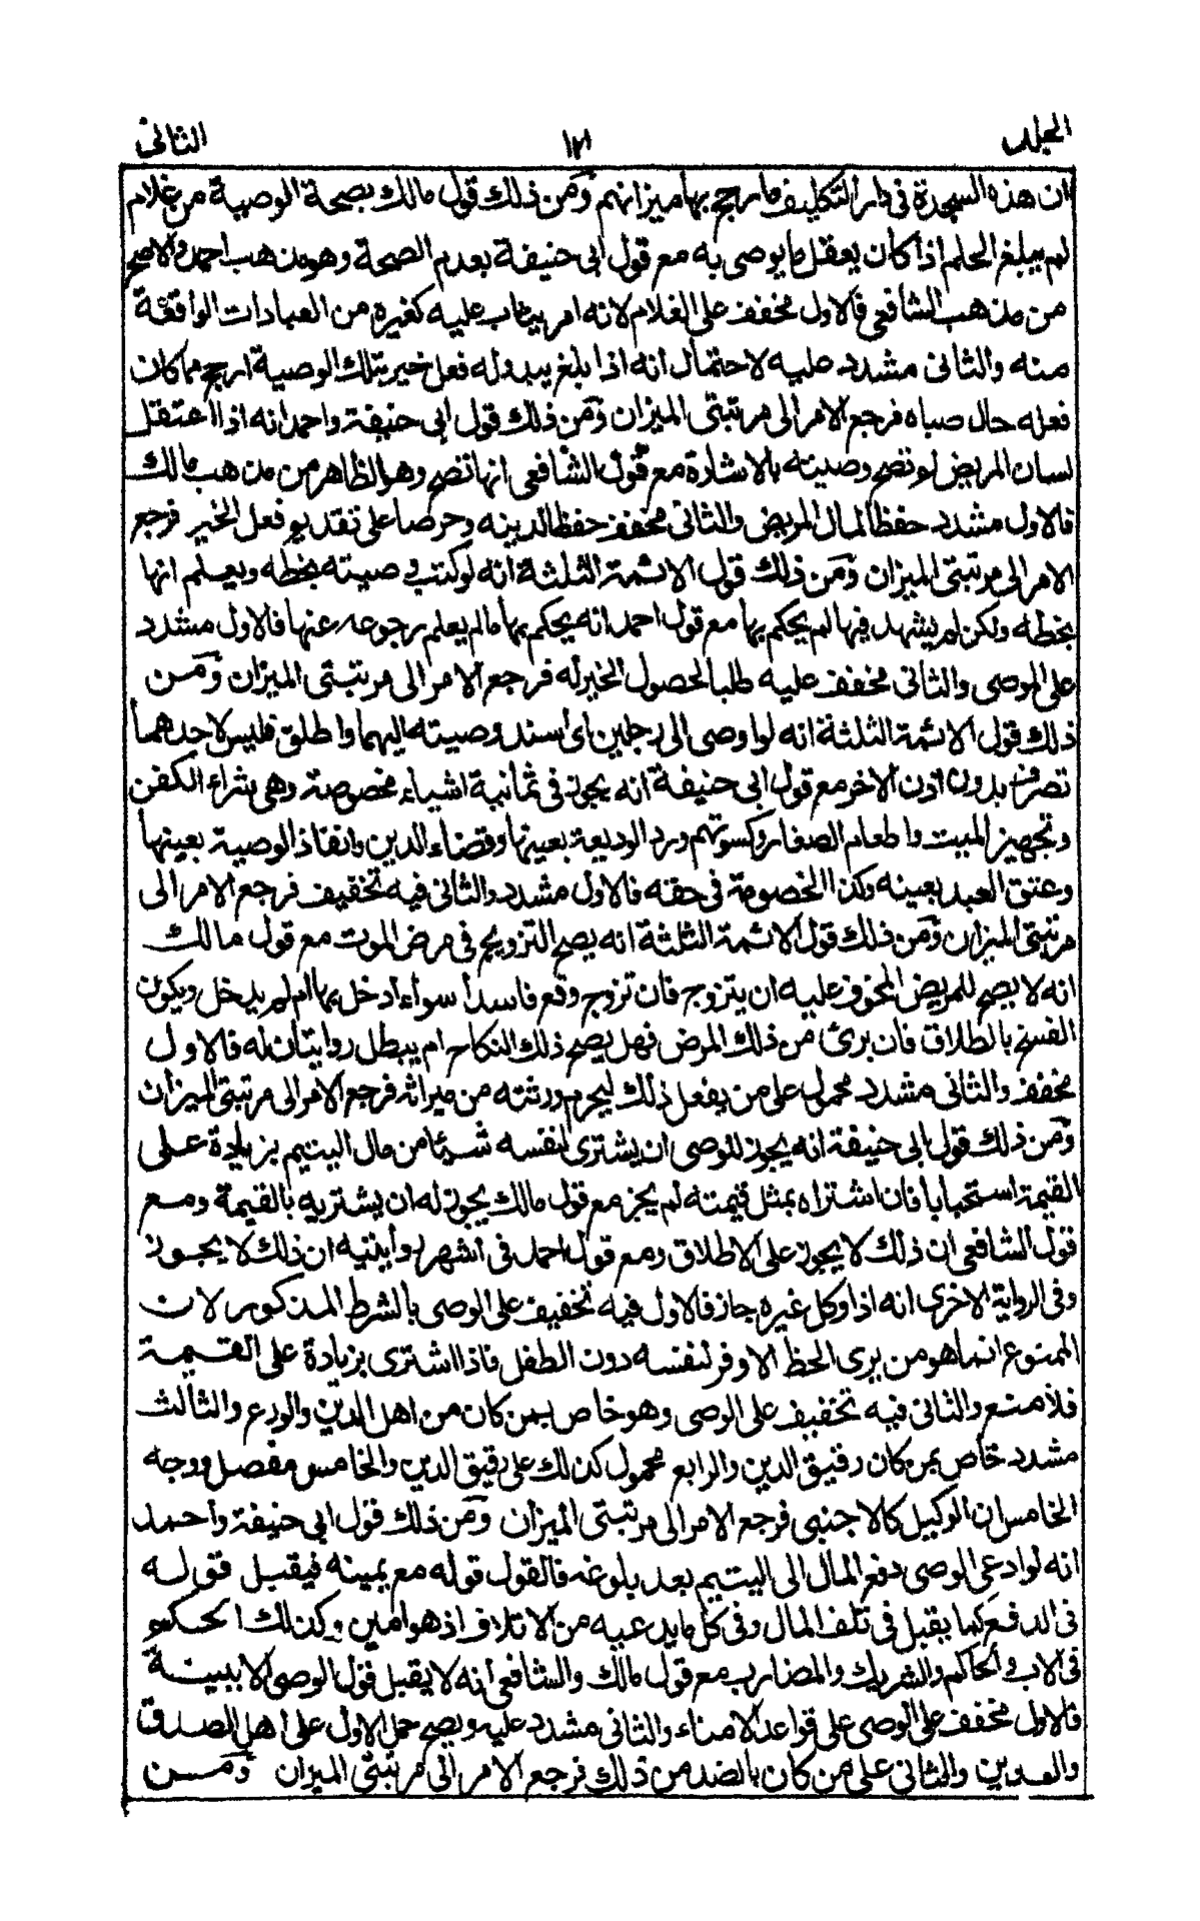 المجلد ١٢١ الثانى
ان هذه السجدة فى دار التكليف ما رجح بها ميزانهم ومن ذلك قول مالك بصحة الوصية من غلام
لم يبلغ الحلم اذا كان يعقل ما يوصى به مع قول ابى حنيفة بعدم الصحة وهو مذهب احمد والاصح
من مذهب الشافعى فالاول مخفف على الغلام لانه امر يثاب عليه كغيره من العبادات الواقعة
منه والثانى مشدد عليه لاحتمال انه اذا بلغ يبدو له فعل خير بتلك الوصية ارجح مما كان
فعله حال صباه فرجع الامر الى مرتبتى الميزان ومن ذلك قول ابى حنيفة واحمد انه اذا اعتقل
لسان المريض لم تصح وصيته بالاشارة مع قول الشافعى انها تصح وهو الظاهر من مذهب مالك
فالاول مشدد حفظا لمال المريض والثانى مخفف حفظا لدينه وحرصا على تقديم فعل الخير فرجع
الامر الى مرتبتى الميزان ومن ذلك قول الائمة الثلثة انه لو كتب وصيته بخطه ويعلم انها
بخطه ولكن لم يشهد فيها لم يحكم بها مع قول احمد انه يحكم بها ما لم يعلم رجوعه عنها فالاول مشدد
على الموصى والثانى مخفف عليه طلبا لحصول الخير له فرجع الامر الى مرتبتى الميزان ومن
ذلك قول الائمة الثلثة انه لو اوصى الى رجلين اى أسند وصيته اليهما واطلق فليس لاحدهما
تصرف بدون اذن الاخر مع قول ابى حنيفة انه يجوز فى ثمانية اشياء مخصوصة وهى شراء الكفن
وتجهيز الميت واطعام الصغار وكسوتهم ورد الوديعة بعينها وقضاء الدين وانفاذ الوصية بعينها
وعتق العبد بعينه وكذا الخصومة فى حقه فالاول مشدد والثانى فيه تخفيف فرجع الامر الى
مرتبتى الميزان ومن ذلك قول الائمة الثلثة انه يصح التزويج فى مرض الموت مع قول مالك
انه لا يصح للمريض المخوف عليه ان يتزوج فان تزوج وقع فاسدا سواء ادخل بها ام لم يدخل ويكون
الفسخ بالطلاق فان برئ من ذلك المرض فهل يصح ذلك النكاح ام يبطل روايتان له فالاول
مخفف والثانى مشدد محمول على من يفعل ذلك ليحرم ورثته من ميراثه فرجع الامر الى مرتبتى الميزان
ومن ذلك قول ابى حنيفة انه يجوز للوصى ان يشترى لنفسه شيئا من مال اليتيم بزيادة على
القيمة استحبابا فان اشتراه بمثل قيمته لم يجز مع قول مالك يجوز له ان يشتريه بالقيمة ومع
قول الشافعى ان ذلك لا يجوز على الاطلاق ومع قول احمد فى اشهر روايتيه ان ذلك لا يجوز
وفى الرواية الاخرى انه اذا وكل غيره جاز فالاول فيه تخفيف على الوصى بالشرط المذكور لان
الممنوع انما هو من يرى الحظ الاوفر لنفسه دون الطفل فاذا اشترى بزيادة على القيمة
فلا منع والثانى فيه تخفيف على الوصى وهو خاص بمن كان من اهل الدين والورع والثالث
مشدد خاص بمن كان رقيق الدين والرابع محمول كذلك على رقيق الدين والخامس مفصل ووجه
الخامس ان الوكيل كالاجنبى فرجع الامر الى مرتبتى الميزان ومن ذلك قول ابى حنيفة وأحمد
انه لو ادعى الوصى دفع المال الى اليتيم بعد بلوغه فالقول قوله مع يمينه فيقبل قوله
فى الدفع كما يقبل فى تلف المال وفى كل ما يدعيه من الاتلاف اذ هو امين وكذلك الحكم
فى الاب والحاكم والشريك والمضارب مع قول مالك والشافعى انه لا يقبل قول الوصى الا ببينة
فالاول مخفف على الوصى على قواعد الامناء والثانى مشدد عليه ويصح حمل الاول على أهل الصدق
والدين والثانى على من كان بالضد من ذلك فرجع الامر الى مرتبتى الميزان ومن